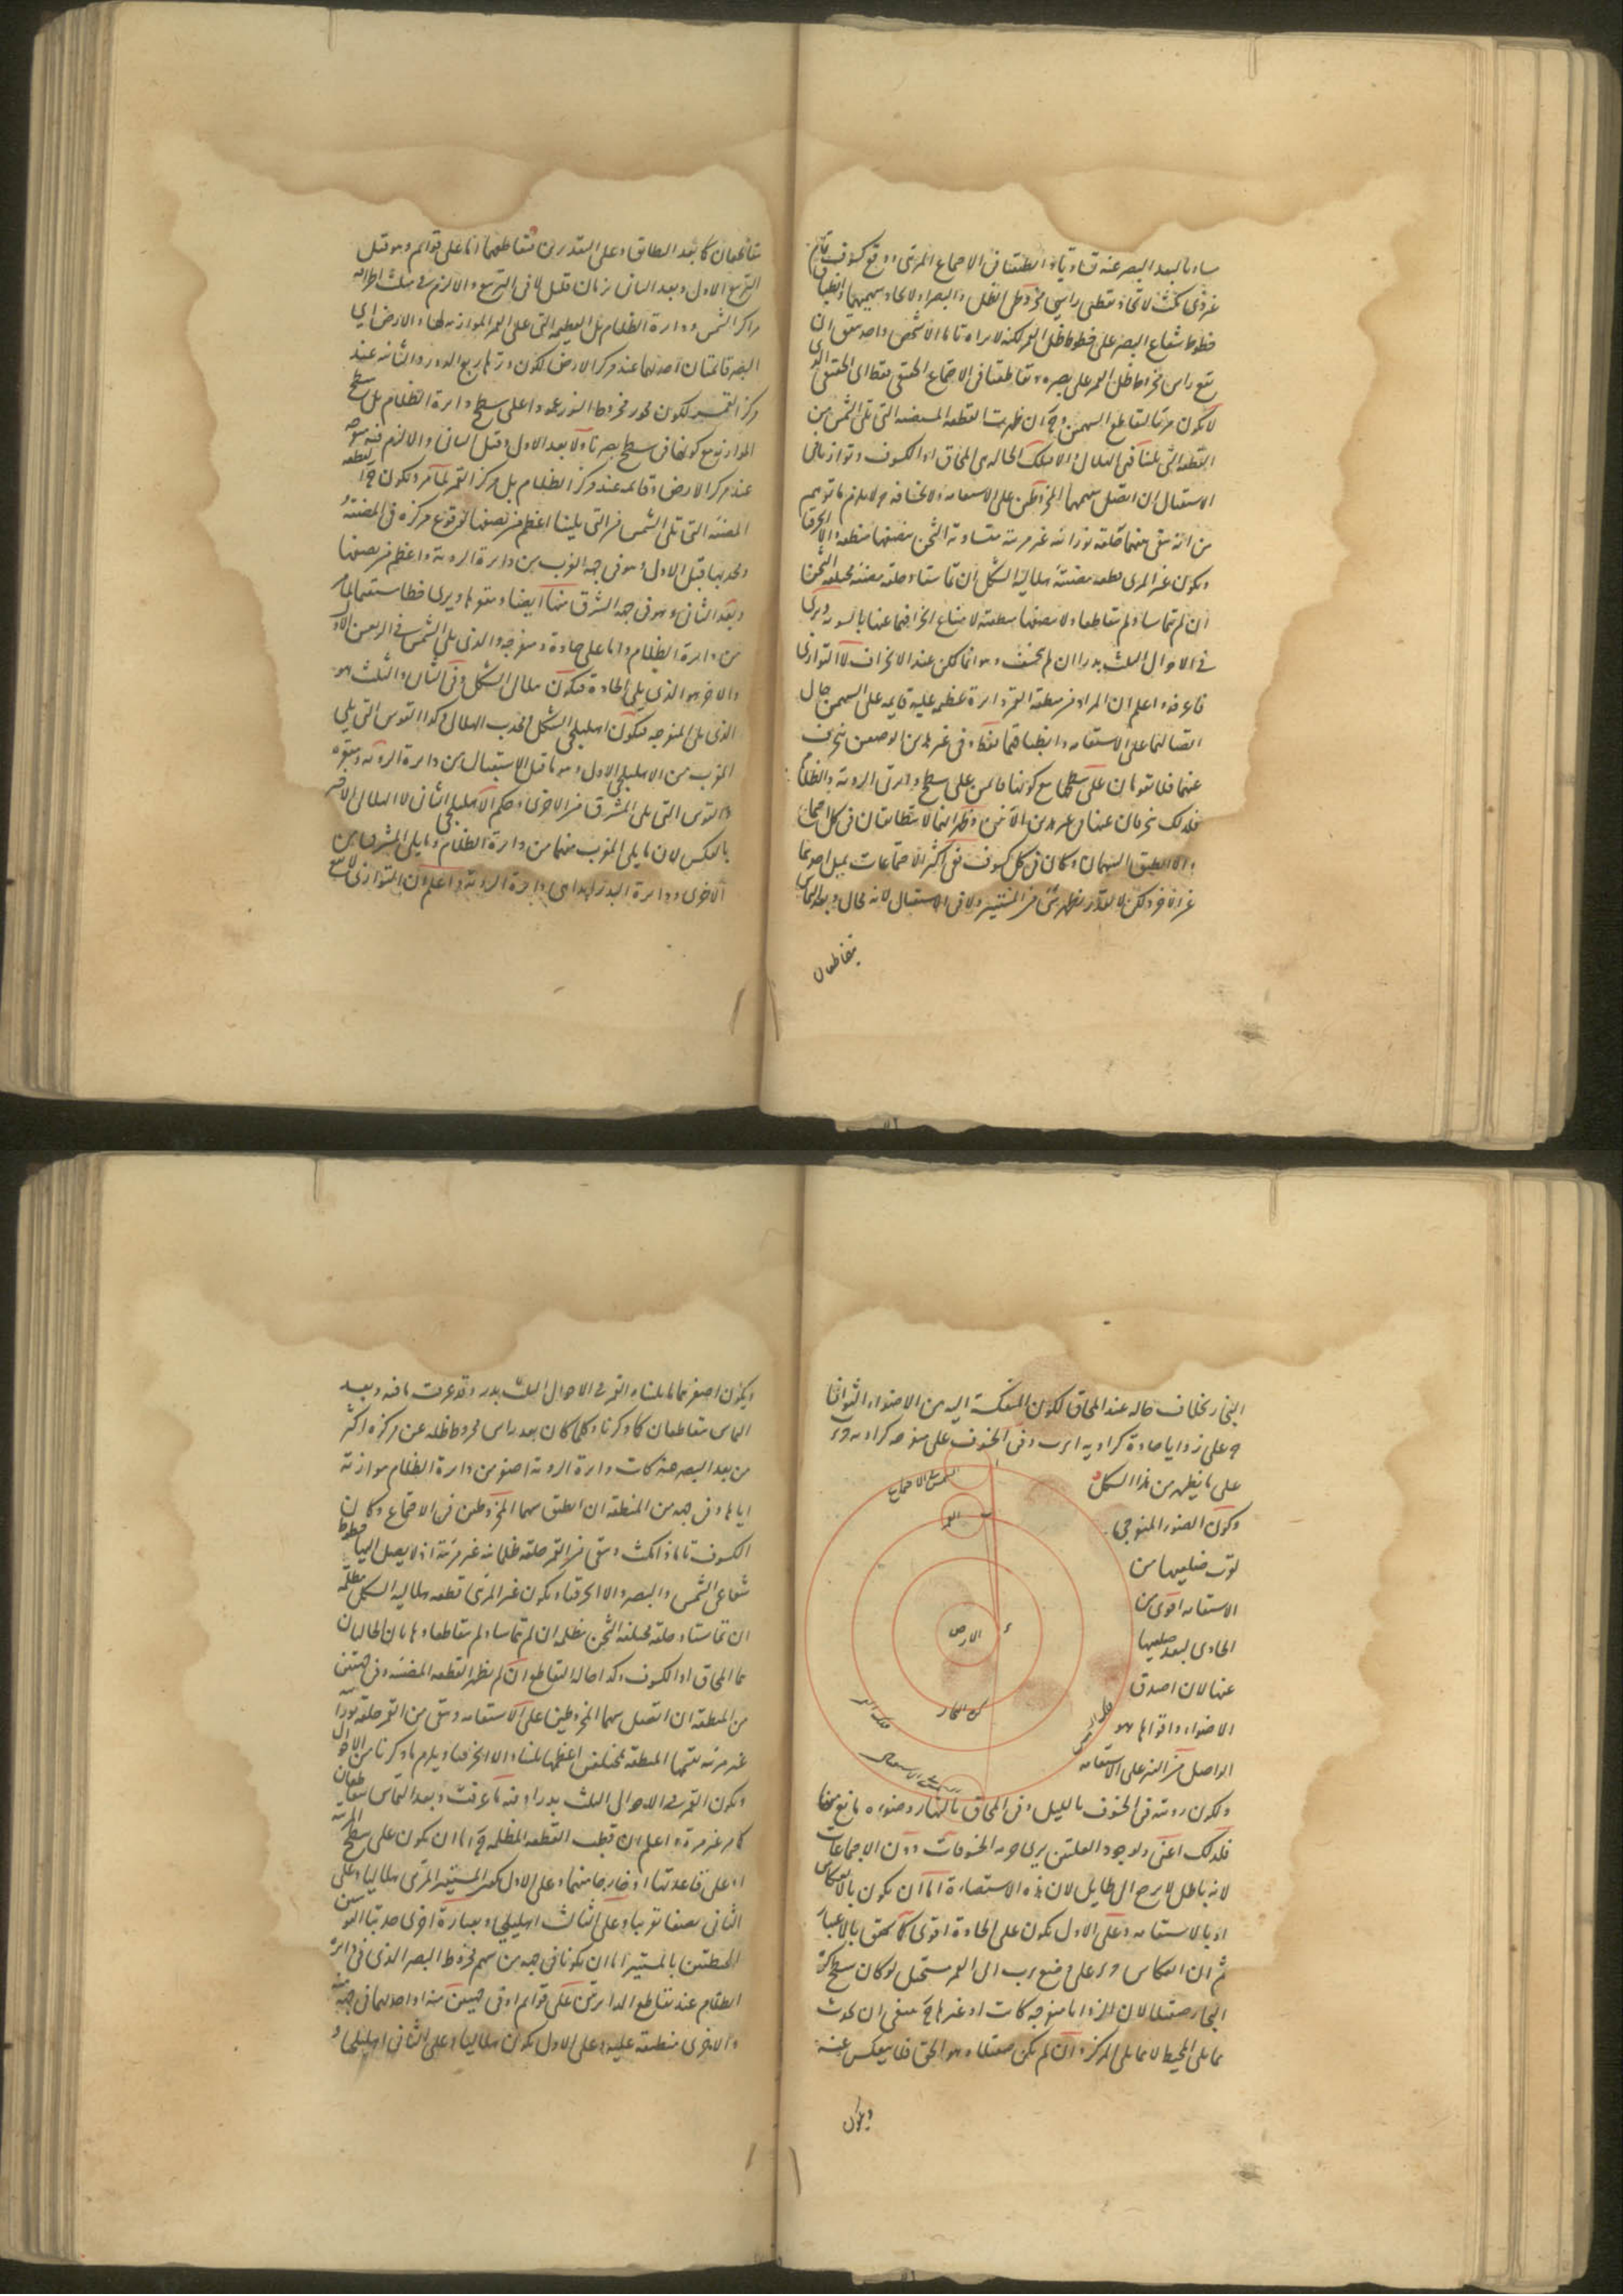 مساويا لبعد البصر عنه تساويتا وانطبقتا في الاجتماع المرئي ووقع كسوف تام
غير ذي مكث لاتحاد نقطتي راسي مخروطي الظل والبصر ولاتحاد سهميهما وانطباق
خطوط شعاع البصر على خطوط ظل القمر لكنه لا يراه تاما الا شخص واحد يتفق ان
يقع راس مخروط ظل القمر على بصره وتقاطعتا في الاجتماع الحقيقي فقط اى الحقيقي الذى
لا يكون مرئيا لتقاطع السهمين وح ان ظهرت القطعة المستضيئة التي تلي الشمس من
القطعة التي تلينا فهي الهلال والا فتلك الحالة هي المحاق او الكسوف وتوازيتا في
الاستقبال ان اتصل سهما المخروطين على الاستقامة ولا انخساف ولا يلزم ما توهم
من انه يبقى منهما حلقة نورانية غير مرئية متساوية الثخن منصفها منطقة والا انحرفتا
ويكون غير المرئي قطعة مضيئة هلالية الشكل ان تماستا وحلقة مضيئة مختلفة الثخن
ان لم تتماسا ولم تتقاطعا ولا منصفها منطقة لامتناع انحرافهما عنها بالسوية ويرى
في الاحوال الثلث بدرا ان لم يخسف وهو انما يمكن عند الانحراف لا التوازى
فاعرفه واعلم ان المراد من منطقة القمر دائرة عظيمة عليه قائمة على السهمين حال
اتصالهما على الاستقامة وانطباقهما فقط وفي غير هذين الوضعين ينحرف
عنهما فلا يقومان على سطحها مع كونهما قائمين على سطح دائرتي الرؤية والظلام
فلذلك تنحرفان عنها في غير هذين الآنين وظهر انهما لا يتطابقان في كل اجتماع
والا لانطبق السهمان وكان في كل كسوف ففي اكثر الاجتماعات يميل احديهما
عن الاخرى ولكن لا بقدر يظهر شئ من المستنير ولا في الاستقبال لانه محال وبعد التماس
يتقاطعان
يتقاطعان كما بعد التطابق وعلى التقديرين فتقاطعهما اما على قوائم وهو قبل
التربيع الاول وبعد الثاني بزمان قليل لا في التربيع والا لزم في مثلث اطرافه
مراكز الشمس ودائرة الظلام بل العظيمة التي على القمر الموازية لها والارض اي
البصر قائمتان احديهما عند مركز الارض لكون وترها ربع الدور والثانية عند
مركز القمر لكون محور مخروط النور عمودا على سطح دائرة الظلام بل سطح
الموازية مع كونها في سطح بصرنا ولا بعد الاول وقبل الثاني والا لزم فيه منفرجة
عند مركز الارض وقائمة عند مركز الظلام بل مركز القمر لما مر وتكون ح القطعة
المضيئة التي تلي الشمس من التي يلينا اعظم من نصفها لوقوع مركزه في المضيئة
وتحدبها قبل الاول وهو في جهة الغرب من دائرة الرؤية واعظم من نصفها
وبعد الثاني وهو في جهة الشرق منها ايضا ومقعرها ويرى خطا مستقيما لما مر
من دائرة الظلام واما على حادة ومنفرجة والذي يلي الشمس في الربعين الاول
والاخر هو الذي يلي الحادة فيكون هلالي الشكل وفي الثاني والثالث هو
الذي يلي المنفرجة فيكون اهليلجي الشكل ومحدب الهلال وكذا القوس التي يلي
المغرب من الاهليلجي الاول وهو ما قبل الاستقبال من دائرة الرؤية ومقعره
والقوس التي يلي المشرق من الاخرى وحكم الاهليلجي الثاني والهلال الاخر
بالعكس لان ما يلي المغرب منهما من دائرة الظلام وما يلي المشرق من
الاخرى ودائرة البدر ابدا هي دائرة الرؤية واعلم ان التوازى لا يقع
البخار بخلاف حاله عند المحاق لكون المنعكسة اليه من الاضواء الثواني
ح على زوايا حادة كزاوية ا ى ب وفي الخسوف على منفرجة كزاوية
على ما يظهر من هذا الشكل
وكون الضوء المنفرجي
لقرب ضلعيها من
الاستقامة اقوى من
الحادى لبعد ضلعيها
عنها لان اصدق
الاضواء واقواها هو
الواصل من النير على الاستقامة
الشمس في الاجتماع
القمر
ا
ب
ء
الارض
كرة البخار
فلك القمر
فلك الشمس
الشمس في الاستقبال
ولكون رؤيته في الخسوف بالليل وفي المحاق بالنهار وضواه مانع منها
فلذلك اعني ولوجود العلتين يرى جرمه الخسوفات دون الاجتماعات
لانه باطل لا يرجع الى طائل لان هذه الاستضاءة اما ان يكون بالانعكاس
او بالاستقامة وعلى الاول يكون على الحادة اقوى كما تحقق بالاعتبار
ثم ان انعكاس ح على وضع ى ب الى القمر مستحيل لو كان سطح كرة
البخار صقيلا لان الزوايا منفرجة كانت او غيرها ح ينبغي ان يحدث
مما يلي المحيط لا مما يلي المركز وان لم يكن صقيلا وهو الحق فلا ينعكس عنه
ويكون
ويكون اصغر مما يلينا والقمر في الاحوال الثلث بدر وقد عرفت ما فيه وبعد
التماس يتقاطعان كما ذكرنا وكلما كان بعد راس مخروط ظله عن مركزه اكثر
من بعد البصر عنه كانت دائرة الرؤية اصغر من دائرة الظلام موازية
اياها وفي جهة من المنطقة ان انطبق سهما المخروطين في الاجتماع وكان
الكسوف تاما ذا مكث وبقي من القمر حلقة ظلمانية غير مرئية اذ لا يصل اليها خطوط
شعاعي الشمس والبصر والا انحرفتا ويكون غير المرئي قطعة هلالية الشكل مظلمة
ان تماستا وحلقة مختلفة الثخن مظلمة ان لم تتماسا ولم تتقاطعا وهاتان الحالتان
هما المحاق او الكسوف وكذا حالة التقاطع ان لم يظهر القطعة المضيئة وفي جهتين
من المنطقة ان اتصل سهما المخروطين على الاستقامة وبقي من القمر حلقة نورانية
غير مرئية تتمها المنطقة بمختلفتين اعظمها يلينا والا انحرفتا ويلزم ما ذكرنا من الاحوال
ويكون القمر في الاحوال الثلث بدرا وفيه ما عرفت وبعد التماس يتقاطعان
كما مر غير مرة واعلم ان قطب القطعة المظلمة ح اما ان يكون على سطح المرئية
او على قاعدتها او خارجا منهما وعلى الاول يكون المستنير المرئي هلاليا وعلى
الثاني نصفا تقريبا وعلى الثالث اهليلجيا وبعبارة اخرى حدبتا القوسين
المحيطتين بالمستنير اما ان يكونا في جهة من سهم مخروط البصر الذي في دائرة
الظلام عند تقاطع الدائرتين على قوائم او في جهتين منه او احديهما في جهة منه
والاخرى منطبقة عليه وعلى الاول يكون هلاليا وعلى الثاني اهليلجيا و